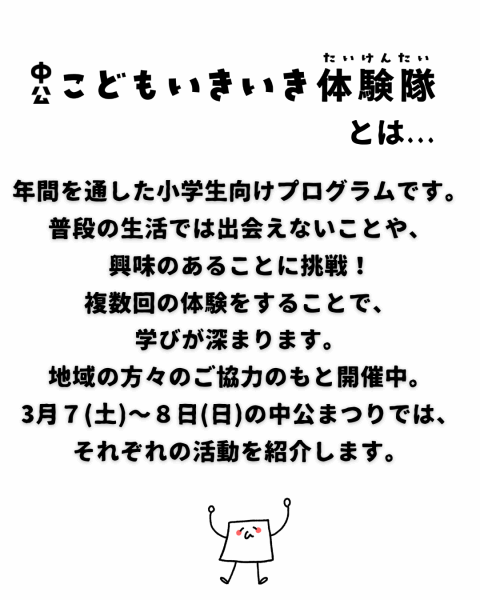 中公こどもいきいき体験隊
たいけんたい
とは…
年間を通した小学生向けプログラムです。
普段の生活では出会えないことや、
興味のあることに挑戦！
複数回の体験をすることで、
学びが深まります。
地域の方々のご協力のもと開催中。
3月７(土)～８日(日)の中公まつりでは、
それぞれの活動を紹介します。